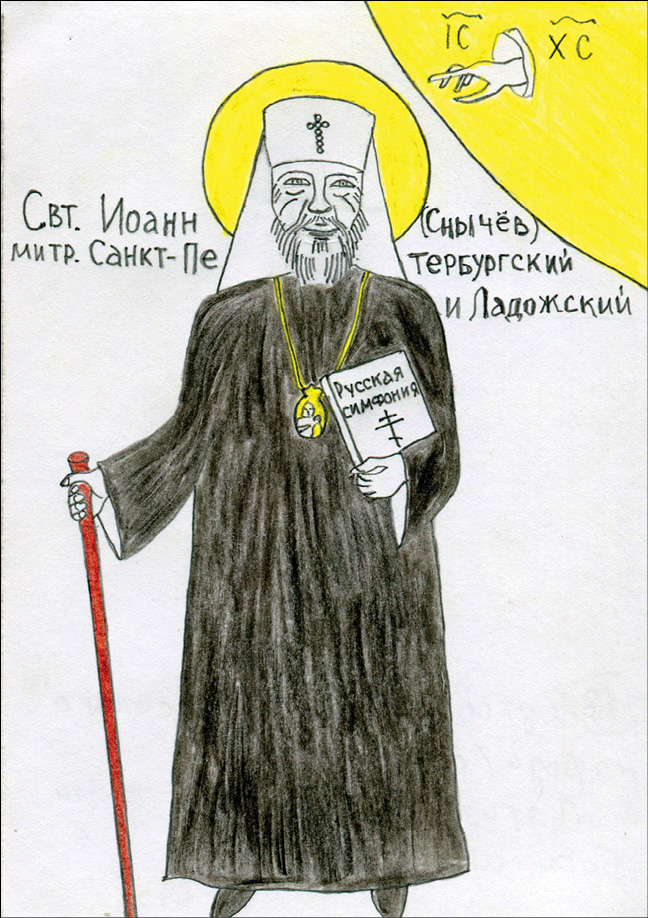 ІС ХС
Свт. Иоанн (Снычёв)
митр. Санкт-Петербургский
и Ладожский
Русская
симфония